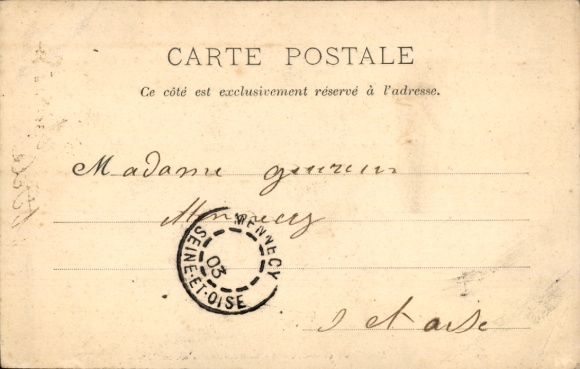 CARTE POSTALE
Ce côté est exclusivement réservé à l'adresse.
Madame
Mennecy
MENNECY
03
SEINE-ET-OISE
S et oise